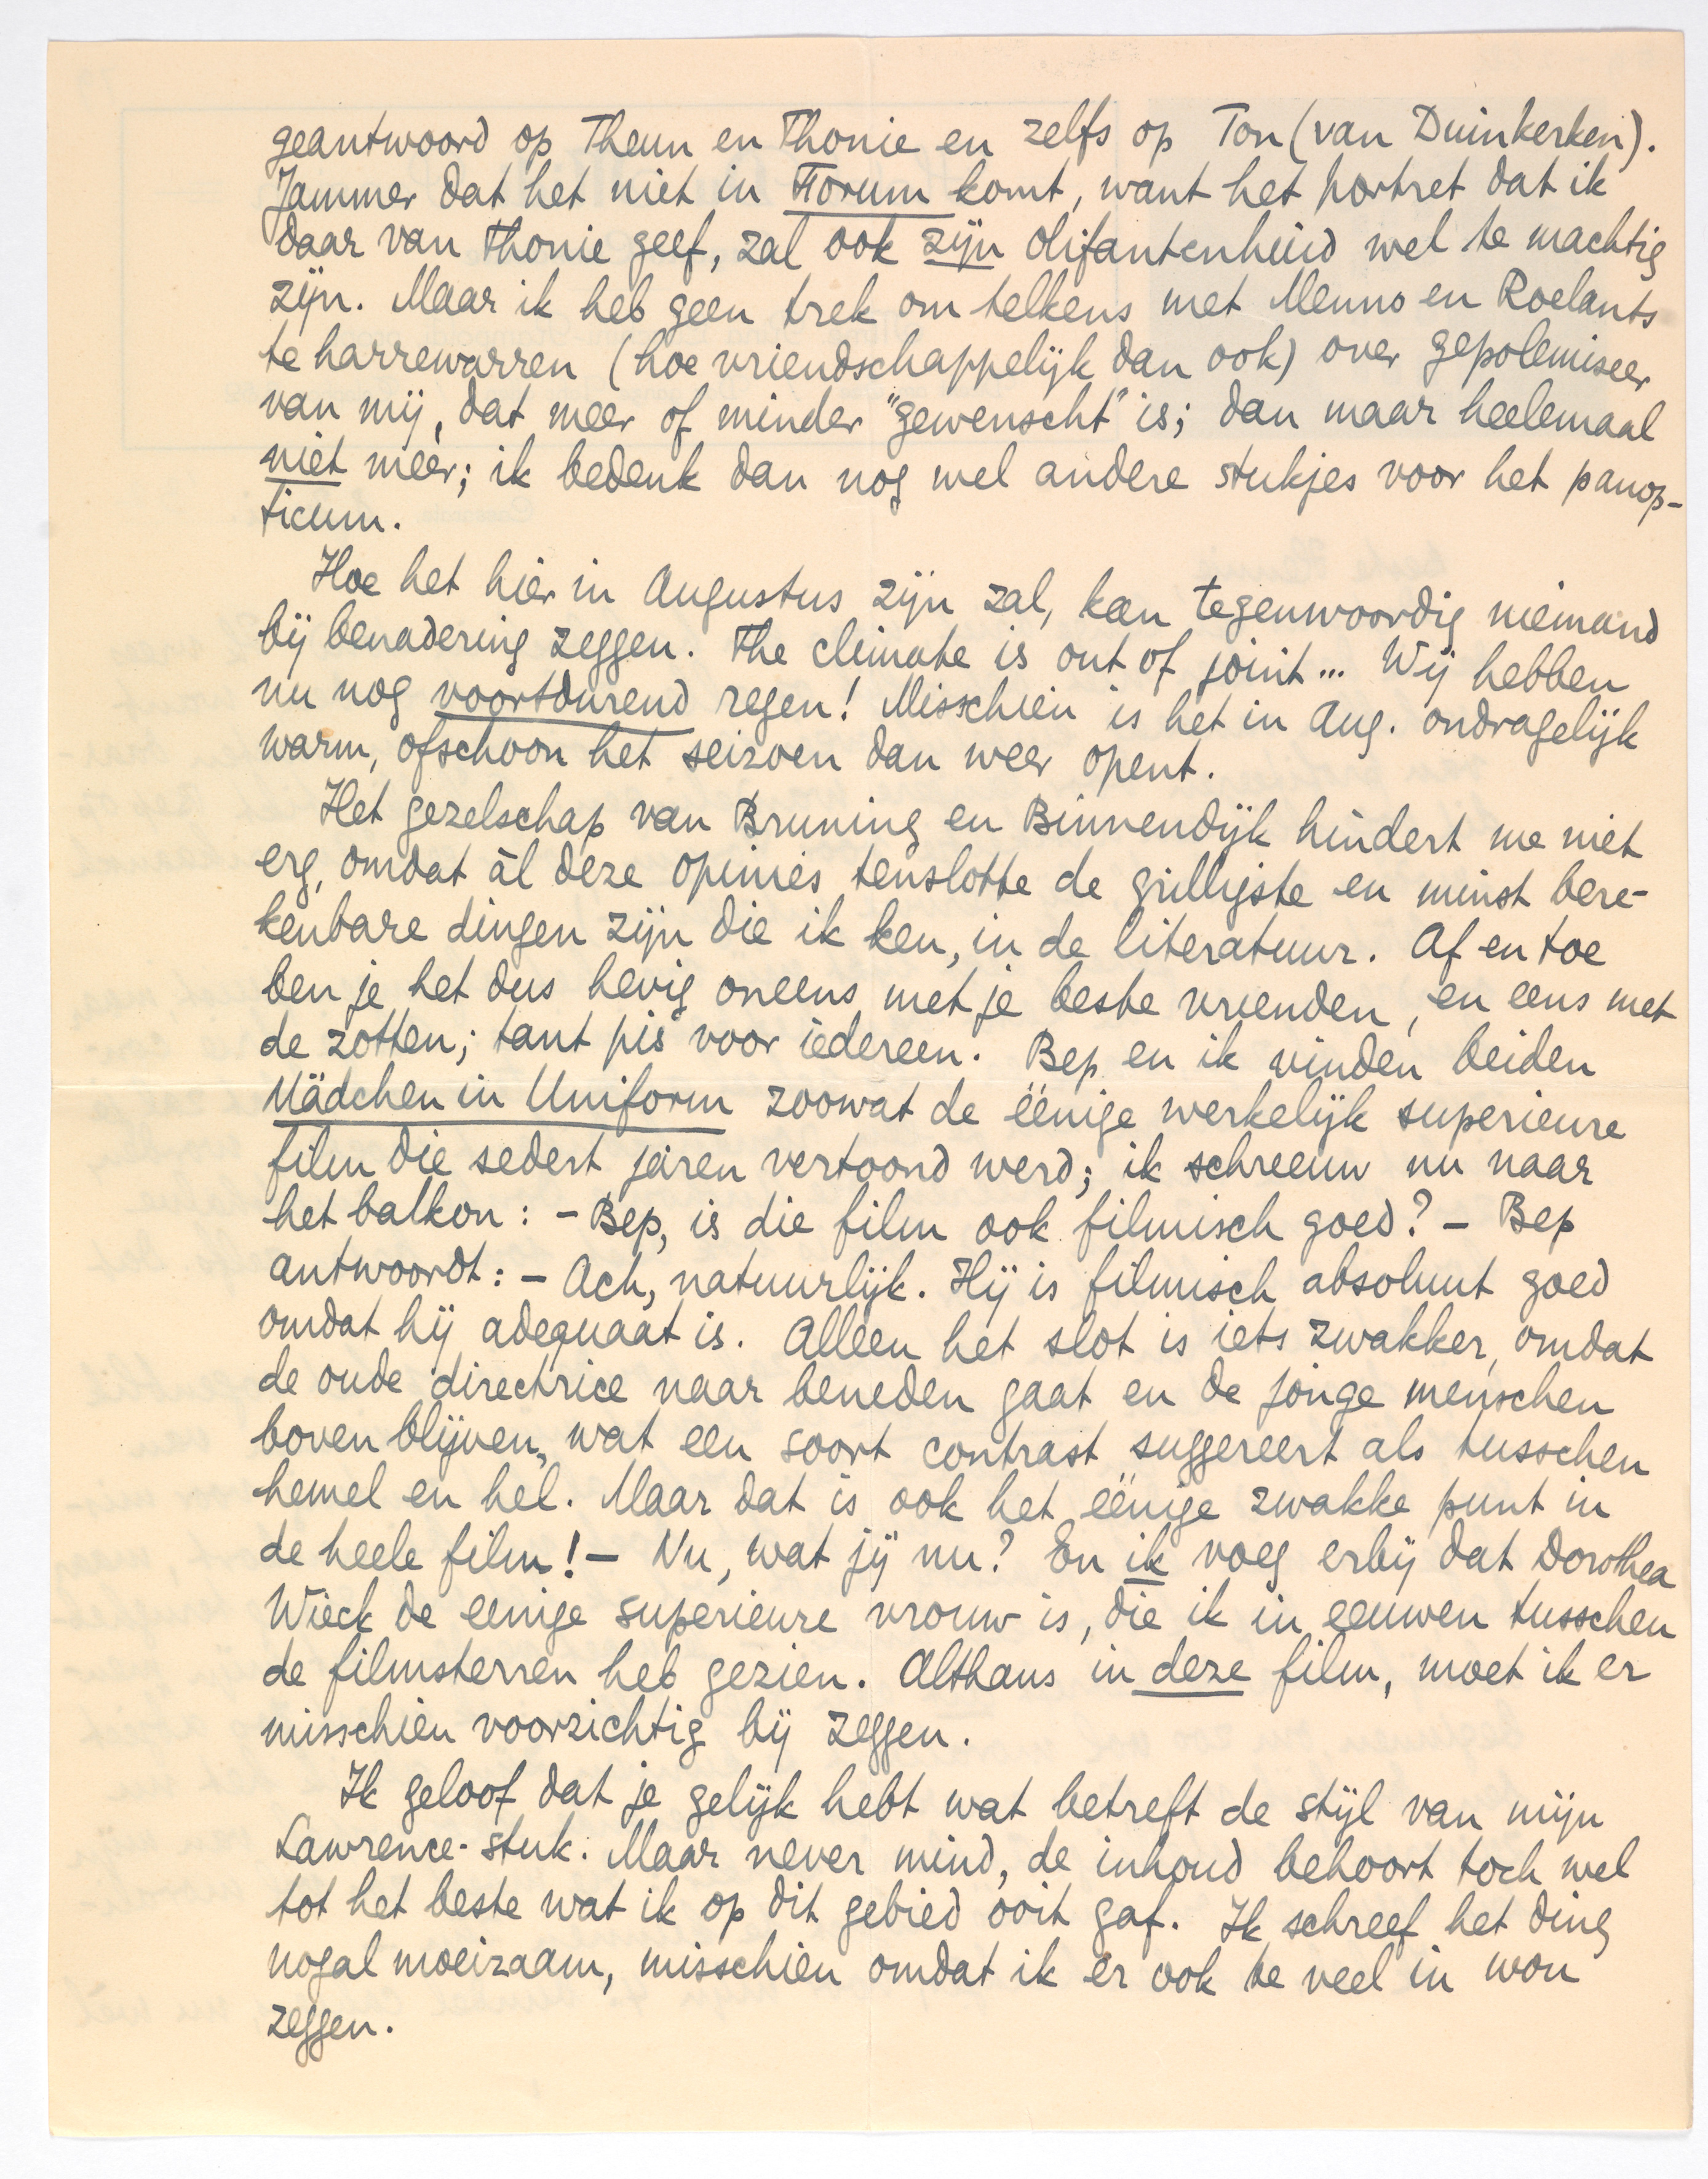 geantwoord op Theun en Thonie en zelfs op Ton (van Duinkerken).
Jammer dat het niet in Forum komt, want het portret dat ik
daar van Thonie geef, zal ook zijn olifantenhuid wel te machtig
zijn. Maar ik heb geen trek om telkens met Menno en Roelants
te harrewarren (hoe vriendschappelijk dan ook) over gepolemiseer
van mij, dat meer of minder "gewenscht" is; dan maar heelemaal
niet meer; ik bedenk dan nog wel andere stukjes voor het panop-
ticum.
Hoe het hier in Augustus zijn zal, kan tegenwoordig niemand
bij benadering zeggen. The climate is out of joint... Wij hebben
nu nog voortdurend regen! Misschien is het in Aug. ondragelijk
warm, ofschoon het seizoen dan weer opent.
Het gezelschap van Bruning en Binnendijk hindert me niet
erg, omdat ál deze opinies tenslotte de grilligste en minst bere-
kenbare dingen zijn die ik ken, in de literatuur. Af en toe
ben je het dus hevig oneens met je beste vrienden, en eens met
de zotten; tant pis voor iedereen. Bep en ik vinden beiden
Mädchen in Uniform zoowat de éénige werkelijk superieure
film die sedert jaren vertoond werd; ik schreeuw nu naar
het balkon: - Bep, is die film ook filmisch goed? - Bep
antwoordt: - Ach, natuurlijk. Hij is filmisch absoluut goed
omdat hij adequaat is. Alleen het slot is iets zwakker, omdat
de oude directrice naar beneden gaat en de jonge menschen
boven blijven, wat een soort contrast suggereert als tusschen
hemel en hel. Maar dat is ook het éénige zwakke punt in
de heele film! - Nu, wat jij nu? En ik voeg erbij dat Dorothea
Wieck de eenige superieure vrouw is, die ik in eeuwen tusschen
de filmsterren heb gezien. Althans in deze film, moet ik er
misschien voorzichtig bij zeggen.
Ik geloof dat je gelijk hebt wat betreft de stijl van mijn
Lawrence-stuk. Maar never mind, de inhoud behoort toch wel
tot het beste wat ik op dit gebied ooit gaf. Ik schreef het ding
nogal moeizaam, misschien omdat ik er ook te veel in wou
zeggen.